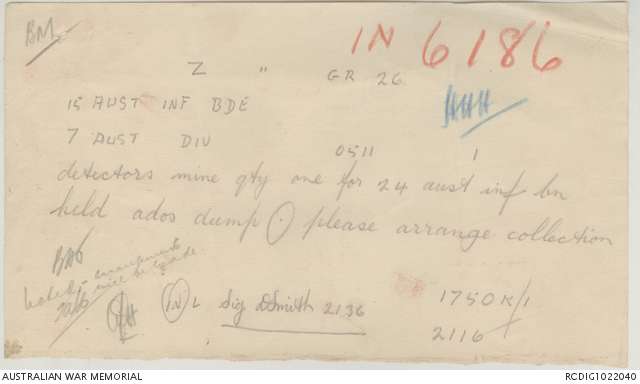 BM
IN 6186
Z " GR 26
15 AUST INF BDE
HHH
7 AUST DIV 0511 1
detectors mine qty one for 24 aust inf bn
held ados dump . please arrange collection
IN L Sig DSmith 2136
1750K/1
2116
AUSTRALIAN WAR MEMORIAL
RCDIG1022040